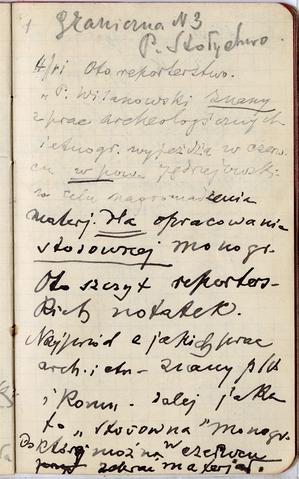 Graniczna N 3
P. Stołyhwo.
4/VI Oto reporterstwo.
„P. Witanowski znany
z prac archeologicznych
i etnogr. wyjeżdża w czerw-
cu w pow. Jędrzejowski
w celu nagromadzenia
materj. dla opracowania
stosownej monogr.
Oto szczyt reporters-
kich notatek.
Najprzód z jakich prac
arch. i etn - znany p/W
i komu - dalej jaka
to „stosowna" monogr.
Do której można w czerwcu
zebrać materjał.